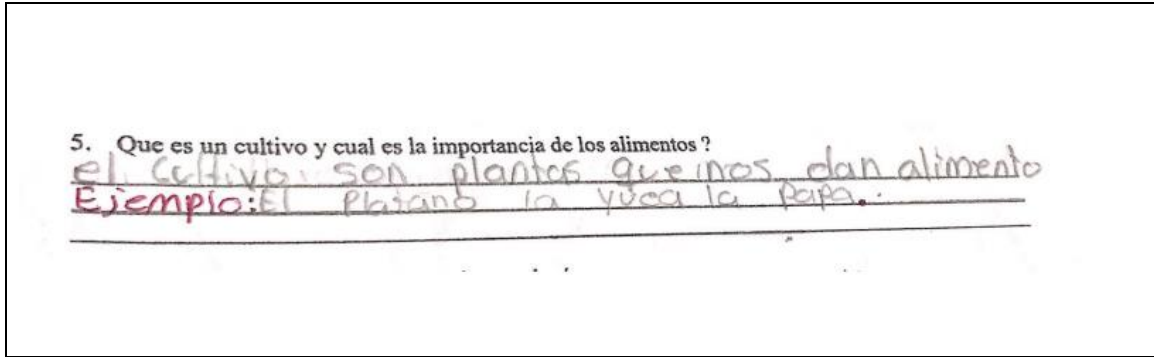 5. Que es un cultivo y cual es la importancia de los alimentos ?
el cultivo son plantas que nos dan alimento
Ejemplo: El Platano la yuca la papa.